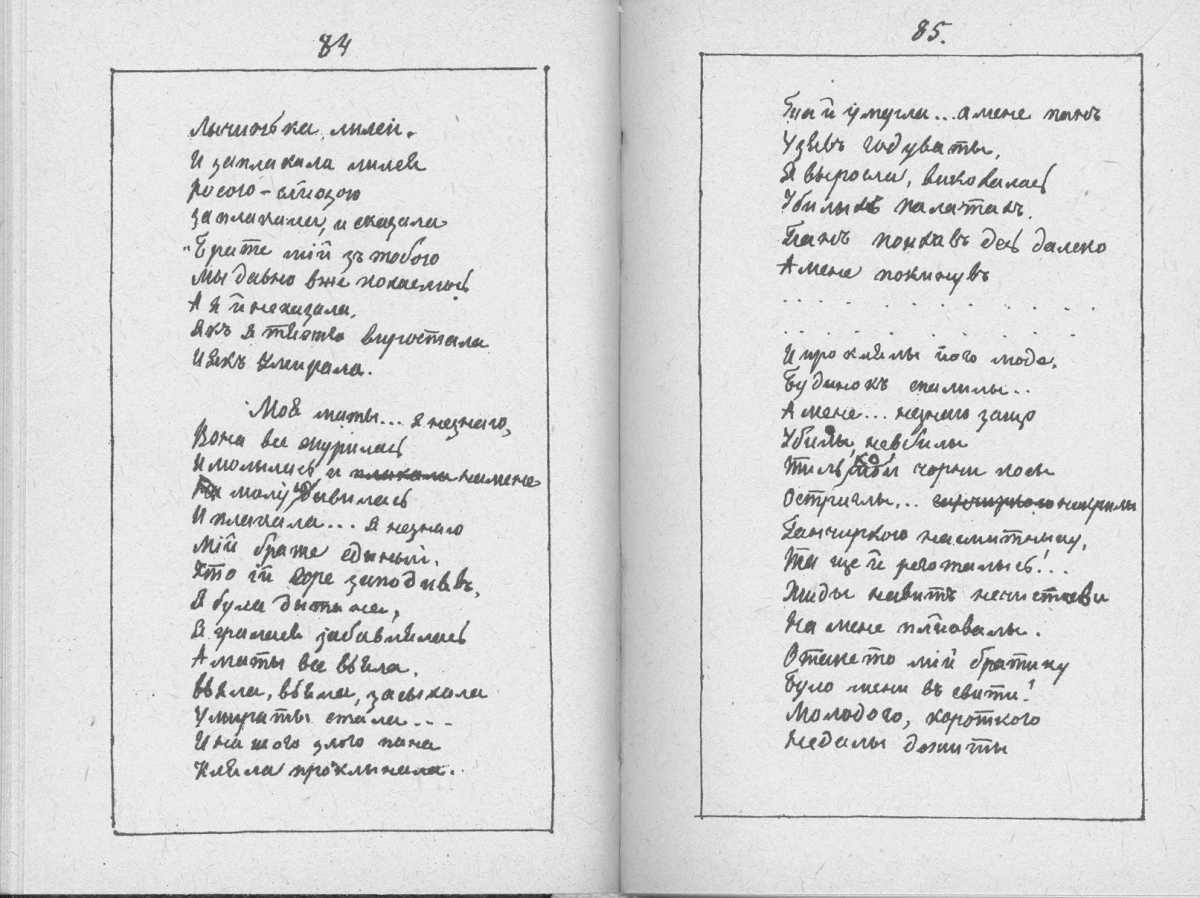 84
Лычинька лилеи.
И заплакала лилея
росою-слiозою
заплакала, и сказала
"Брате мій зъ тобою
Мы давно вже кохаемось
А я й неказала,
Якъ я тiлко выростала
И якъ умирала.
Моя маты... я незнаю,
Вона все журилась
И молылась и плакала на мене
На малу дывилась
И плакала... я незнаю
Мій брате едыный.
Хто ій горе заподиявъ,
Я була дытына,
Я гралася забавлялась
А маты все вяла.
Вяла, вяла, засыхала
Умираты стала...
И на того злого пана
Кляла проклынала.
85.
Та й умерла... а мене панъ
Узявъ годуваты,
Я выросла, викохалась
У билыхъ палатахъ.
Панъ поихавъ десь далеко
А мене покинувъ
И прокляли його люде,
Будинокъ спалилы..
А мене... незнаю защо
Убилы, невбилы
Тилько мои чорни косы
Остриглы... накрилы
Ганчиркою на смитныку,
Та ще й реготалысь!...
Жиды навить нечистыви
На мене плювалы.
Отаке то мій братику
Було мени въ свити!
Молодого, короткого
Недалы дожиты